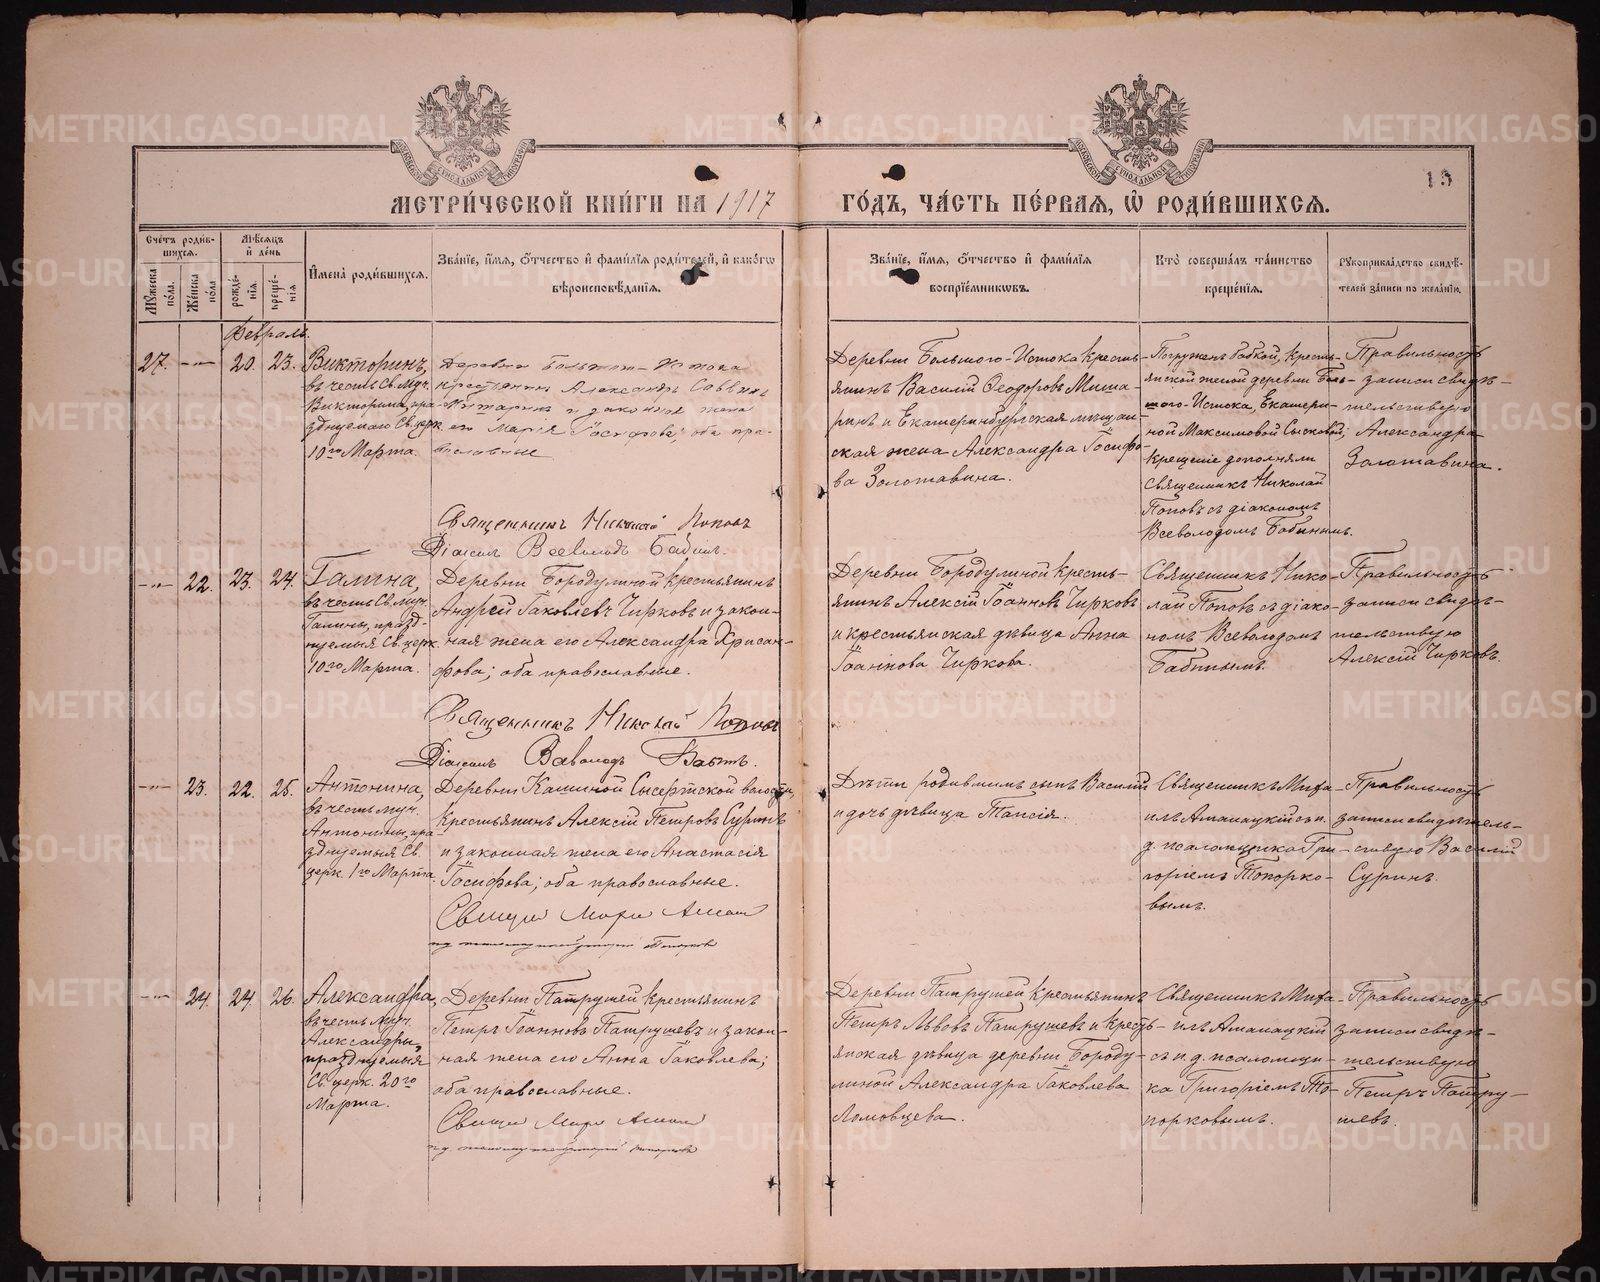 13
МЕТРИ́ЧЕСКОЙ КНИ́ГИ НА 1917 ГО́ДЪ, ЧА́СТЬ ПЕ́РВАЯ, Ѡ РОДИ́ВШИХСЯ.
Счетъ родив-
шихся.
Мужеска пола.
Женска пола
Мѣсяцъ
и день
рожде-
нія.
креще-
нія
Имена родившихся.
Званіе, имя, отчество и фамилія родителей, и какогѡ
вѣроисповѣданія.
Званіе, имя, отчество и фамилія
воспріемниковъ.
Кто совершалъ таинство
крещенія.
Рукоприкладство свидѣ-
телей записи по желанію.
Февраль.
27. —"— 20. 23.
Викторинъ,
въ честь Св. Муч.
Викторина, пра-
зднуемаго Св. церк.
10го Марта.
Деревни Большого-Истока
крестьянинъ Александръ Саввинъ
и законная жена
его Марія Іосифова; оба пра-
вославные
Священникъ Николай Поповъ
Діаконъ Всеволодъ Бабинъ.
Деревни Большого-Истока кресть-
янинъ Василій Ѳеодоровъ Миша-
ринъ и Екатеринбургская мѣщан-
ская жена Александра Іосифо-
ва Золотавина.
Погруженъ бабкой, кресть-
янской женой деревни Боль-
шого-Истока, Екатери-
ной Максимовой Сысковой;
крещеніе дополняли
священникъ Николай
Поповъ съ діакономъ
Всеволодомъ Бабинымъ.
Правильность
записи свидѣ-
тельствую
Александра
Золотавина.
—"— 22. 23. 24.
Галина,
въ честь Св. Муч.
Галины, празд-
нуемыя Св. церк.
10го Марта.
Деревни Бородулиной крестьянинъ
Андрей Іаковлевъ Чирковъ и закон-
ная жена его Александра Хрисан-
фова; оба православные.
Священникъ Николай Поповъ
Діаконъ Всеволодъ Бабинъ.
Деревни Бородулиной кресть-
янинъ Алексій Іоанновъ Чирковъ
и крестьянская дѣвица Анна
Іоаннова Чиркова.
Священникъ Нико-
лай Поповъ съ діако-
номъ Всеволодомъ
Бабинымъ.
Правильность
записи свидѣ-
тельствую
Алексій Чирковъ.
—"— 23. 22. 25.
Антонина,
въ честь муч.
Антонины, пра-
зднуемыя Св.
церк. 1го Марта.
Деревни Кашиной Сысертской волости,
крестьянинъ Алексій Петровъ Суринъ
и законная жена его Анастасія
Іосифова; оба православные.
Дѣти родившимъ сынъ Василій
и дочь дѣвица Таисія.
Священникъ Миха-
илъ Аманацкій съ и.
д. псаломщика Гри-
горіемъ Топорко-
вымъ.
Правильность
записи свидѣтель-
ствую Василій
Суринъ.
—"— 24. 24. 26.
Александра,
въ честь муч.
Александры,
празднуемыя
Св. церк. 20го
Марта.
Деревни Патрушей крестьянинъ
Петръ Іоанновъ Патрушевъ и закон-
ная жена его Анна Іаковлева;
оба православные.
Деревни Патрушей крестьянинъ
Петръ Львовъ Патрушевъ и кресть-
янская дѣвица деревни Бороду-
линой Александра Іаковлева
Ломовцева.
Священникъ Миха-
илъ Аманацкій
съ и. д. псаломщи-
ка Григоріемъ То-
порковымъ.
Правильность
записи свидѣ-
тельствую
Петръ Патру-
шевъ.
METRIKI.GASO-URAL.RU